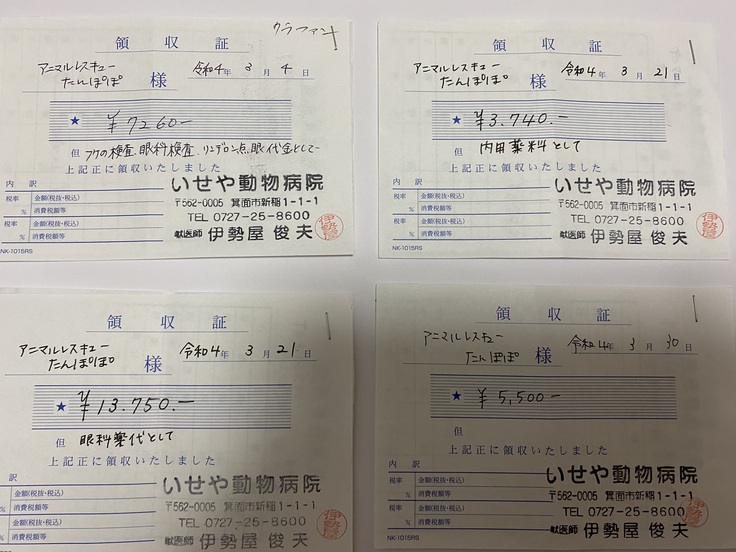 クラファン
領収証
アニマルレスキュー
たんぽぽ 様 令和4年 3月 4日
★ ¥7260-
但 フケの検査、眼科検査、リンデロン点眼代金として
上記正に領収いたしました
内訳
税率 金額(税抜・税込)
% 消費税額等
税率 金額(税抜・税込)
% 消費税額等
NK-1015RS
いせや動物病院
〒562-0005 箕面市新稲1-1-1
TEL 0727-25-8600
獣医師 伊勢屋 俊夫
伊勢屋
領収証
アニマルレスキュー
たんぽぽ 様 令和4年 3月 21日
★ ¥3.740.-
但 内用薬料として
上記正に領収いたしました
内訳
税率 金額(税抜・税込)
% 消費税額等
税率 金額(税抜・税込)
% 消費税額等
NK-1015RS
いせや動物病院
〒562-0005 箕面市新稲1-1-1
TEL 0727-25-8600
獣医師 伊勢屋 俊夫
伊勢屋
領収証
アニマルレスキュー
たんぽぽ 様 令和4年 3月 21日
★ ¥13.750.-
但 眼科薬代として
上記正に領収いたしました
訳
金額(税抜・税込)
% 消費税額等
金額(税抜・税込)
% 消費税額等
いせや動物病院
〒562-0005 箕面市新稲1-1-1
TEL 0727-25-8600
獣医師 伊勢屋 俊夫
伊勢屋
領収証
アニマルレスキュー
たんぽぽ 様 令和4年 3月 30日
★ ¥5,500-
但
上記正に領収いたしました
内訳
税率 金額(税抜・税込)
% 消費税額等
税率 金額(税抜・税込)
% 消費税額等
NK-1015RS
いせや動物病院
〒562-0005 箕面市新稲1-1-1
TEL 0727-25-8600
獣医師 伊勢屋 俊夫
伊勢屋